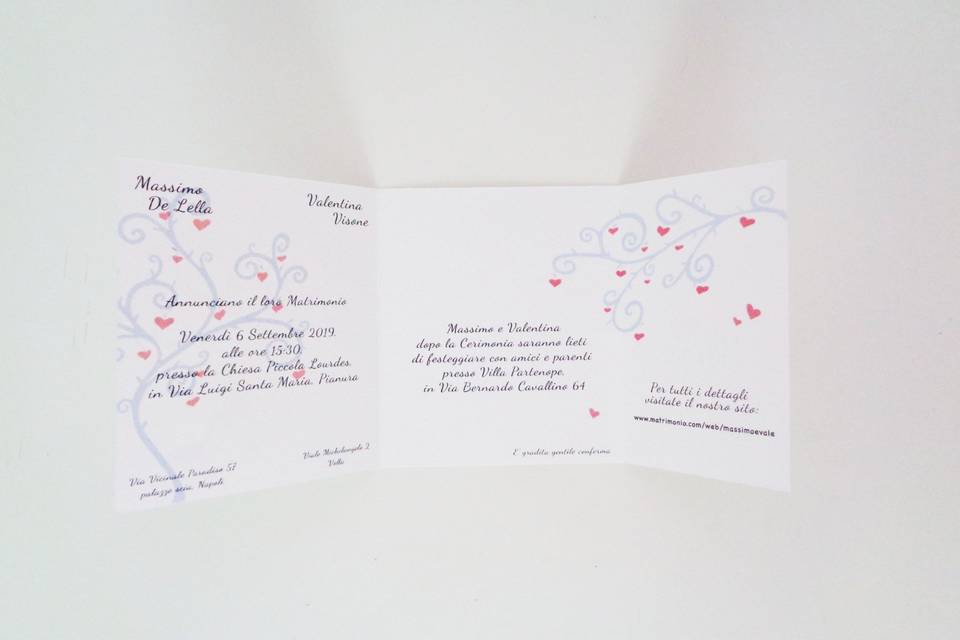 Massimo
De Lella
Valentina
Visone
Annunciano il loro Matrimonio
Venerdì 6 Settembre 2019,
alle ore 15:30,
presso la Chiesa Piccola Lourdes,
in Via Luigi Santa Maria, Pianura
Via Vicinale Paradiso 57
palazzo Napoli
Viale Michelangelo 2
Massimo e Valentina
dopo la Cerimonia saranno lieti
di festeggiare con amici e parenti
presso Villa Partenope,
in Via Bernardo Cavallino 64
E' gradita gentile conferma
Per tutti i dettagli
visitate il nostro sito:
www.matrimonio.com/web/massimoevale